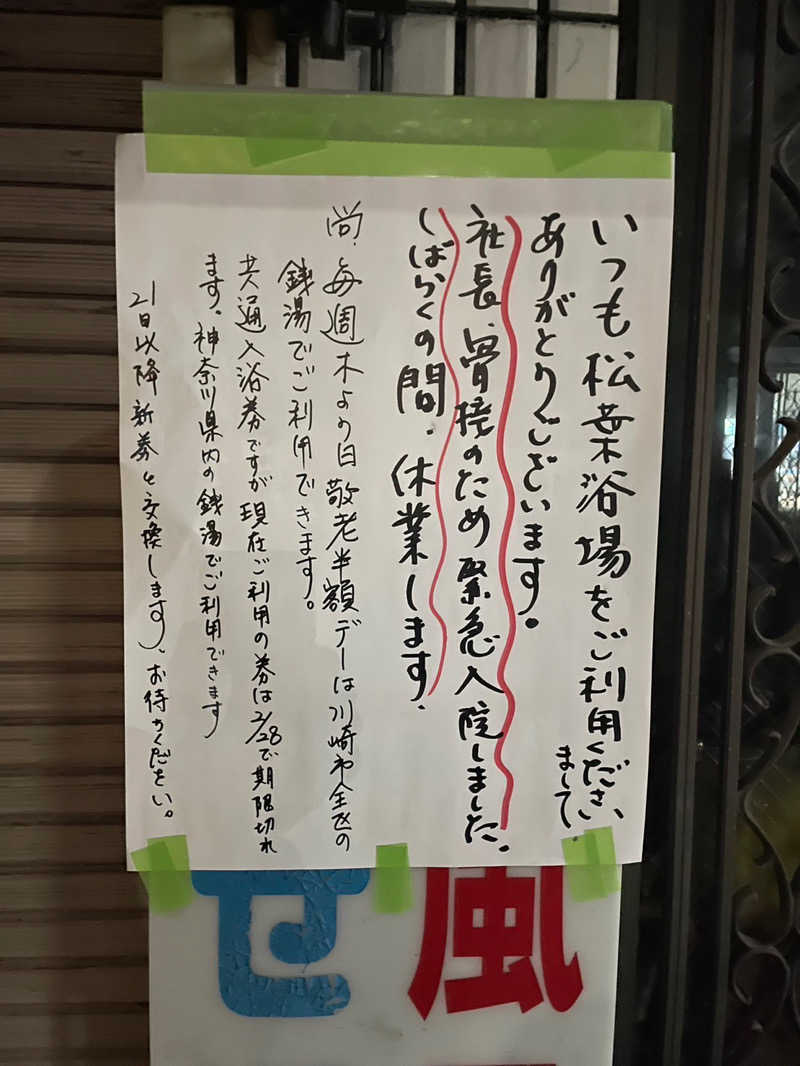 いつも松葉浴場をご利用くださいまして、
ありがとうございます。
社長、骨接のため緊急入院しました。
しばらくの間、休業します。
尚、毎週木より日敬老半額デーは川崎市全区の
銭湯でご利用できます。
共通入浴券ですが現在ご利用の券は2/28で期限切れ
ます。神奈川県内の銭湯でご利用できます
21日以降新券と交換します、お待ちください。
風
せ